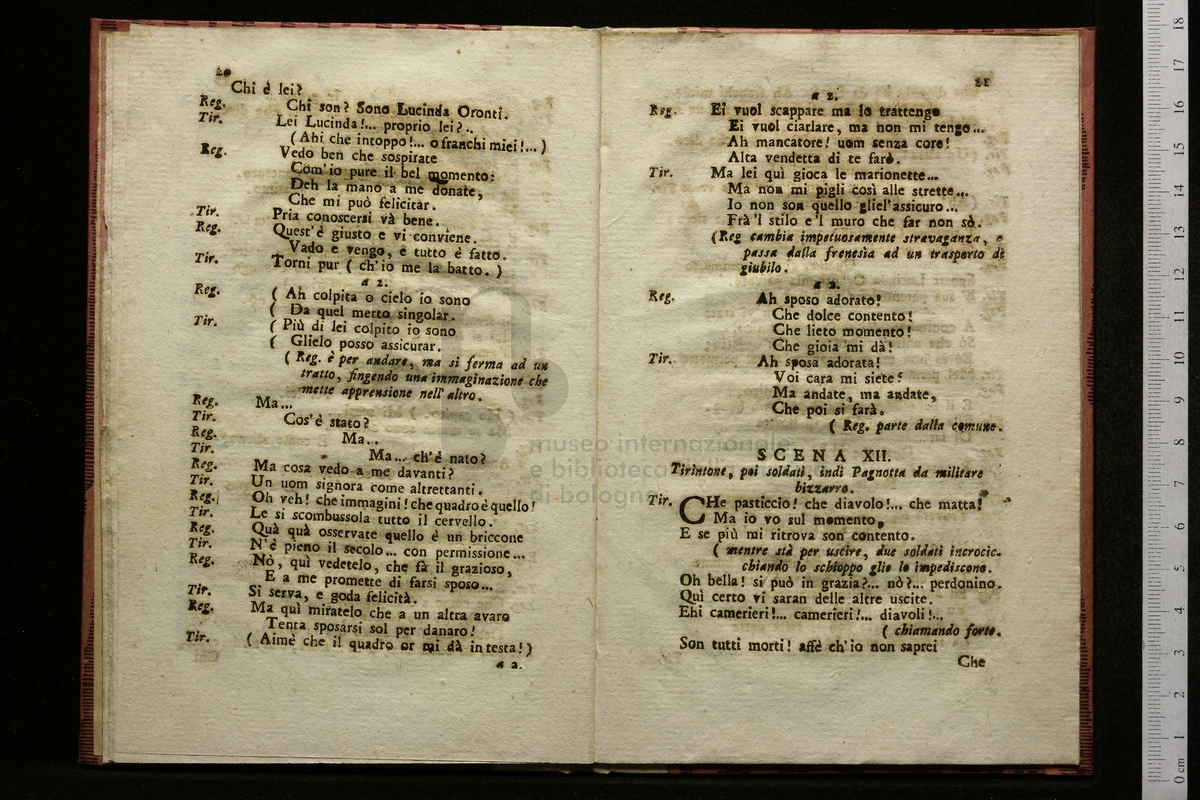 20
Chi è lei?
Reg. Chi son? Sono Lucinda Oronti.
Tir. Lei Lucinda!... proprio lei?..
( Ahi che intoppo!... o franchi miei!... )
Reg. Vedo ben che sospirate
Com'io pure il bel momento:
Deh la mano a me donate,
Che mi può felicitar.
Tir. Pria conoscersi và bene.
Reg. Quest'è giusto e vi conviene.
Vado e vengo, e tutto è fatto.
Tir. Torni pur ( ch'io me la batto. )
a 2.
Reg. ( Ah colpita o cielo io sono
( Da quel merto singolar.
Tir. ( Più di lei colpito io sono
( Glielo posso assicurar.
( Reg. è per andare, ma si ferma ad un
tratto, fingendo una immaginazione che
mette apprensione nell'altro.
Reg. Ma...
Tir. Cos'è stato?
Reg. Ma...
Tir. Ma... ch'è nato?
Reg. Ma cosa vedo a me davanti?
Tir. Un uom signora come altrettanti.
Reg. Oh veh! che immagini! che quadro è quello!
Tir. Le si scombussola tutto il cervello.
Reg. Quà quà osservate quello è un briccone
Tir. N'è pieno il secolo... con permissione...
Reg. Nò, quì vedetelo, che fà il grazioso,
E a me promette di farsi sposo...
Tir. Si serva, e goda felicità.
Reg. Ma quì miratelo che a un altra avaro
Tenta sposarsi sol per danaro!
Tir. ( Aimè che il quadro or mi dà in testa! )
a 2.
21
a 2.
Reg. Ei vuol scappare ma lo trattengo
Ei vuol ciarlare, ma non mi tengo...
Ah mancatore! uom senza core!
Alta vendetta di te farò.
Tir. Ma lei quì gioca le marionette...
Ma non mi pigli così alle strette...
Io non son quello gliel'assicuro...
Frà 'l stilo e 'l muro che far non sò.
(Reg cambia impetuosamente stravaganza, e
passa dalla frenesìa ad un trasporto di
giubilo.
a 2.
Reg. Ah sposo adorato!
Che dolce contento!
Che lieto momento!
Che gioia mi dà!
Tir. Ah sposa adorata!
Voi cara mi siete!
Ma andate, ma andate,
Che poi si farà.
( Reg. parte dalla comune.
SCENA XII.
Tirintone, poi soldati, indi Pagnotta da militare
bizzarro.
Tir. CHe pasticcio! che diavolo!... che matta!
Ma io vo sul momento,
E se più mi ritrova son contento.
( mentre stà per uscire, due soldati incrocic-
chiando lo schioppo glie lo impediscono.
Oh bella! si può in grazia?... nò?... perdonino.
Quì certo vi saran delle altre uscite.
Ehi camerieri!... camerieri!... diavoli!...
( chiamando forte.
Son tutti morti! affè ch'io non saprei
Che
museo internazionale
e biblioteca
di bologna
0 cm 1 2 3 4 5 6 7 8 9 10 11 12 13 14 15 16 17 18